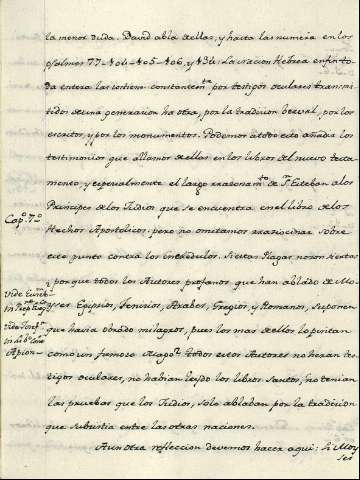 la menor duda. David abla de ellas, y hasta las numera en los
psalmos 77-104-105-106, y 134. La nacion Hebrea en fin to-
da entera las sostiene constantem.te por testigos oculares transmi-
tidos de una generacion ha otra, por la tradicion berval, por los
escritos, y por los monumentos. Podemos a todo esto añadir los
testimonios que allamos de ellas en los libros del nuevo testa-
mento, y especialmente el largo razonam.to de S. Esteban a los
Principes de los Judios que se encuentra en el libro de los
Hechos Apostolicos. pero no omitamos razziocinar sobre
este punto contra los Incredulos. Si estas Plagas no son siertas
porque todos los Autores profanos que han ablado de Mo-
yses Egipsios, Fenisios, Arabes, Gregios, y Romanos, suponen
que havia obrado milagros, pues los mas de ellos lo pintan
como un famoso Mago? todos estos Autores no heran tes-
tigos oculares, no habian leydo los libros santos, no tenian
las pruebas que los Judios, solo ablaban por la tradicion
que subsistia entre las otras naciones.
Aun otra refleccion devemos hacer aqui: Si Moy
ses
Cap.o 7.o
Vide Euseb.
in Prep. Evang.
Vide Josef
in Lib. con.
Apion